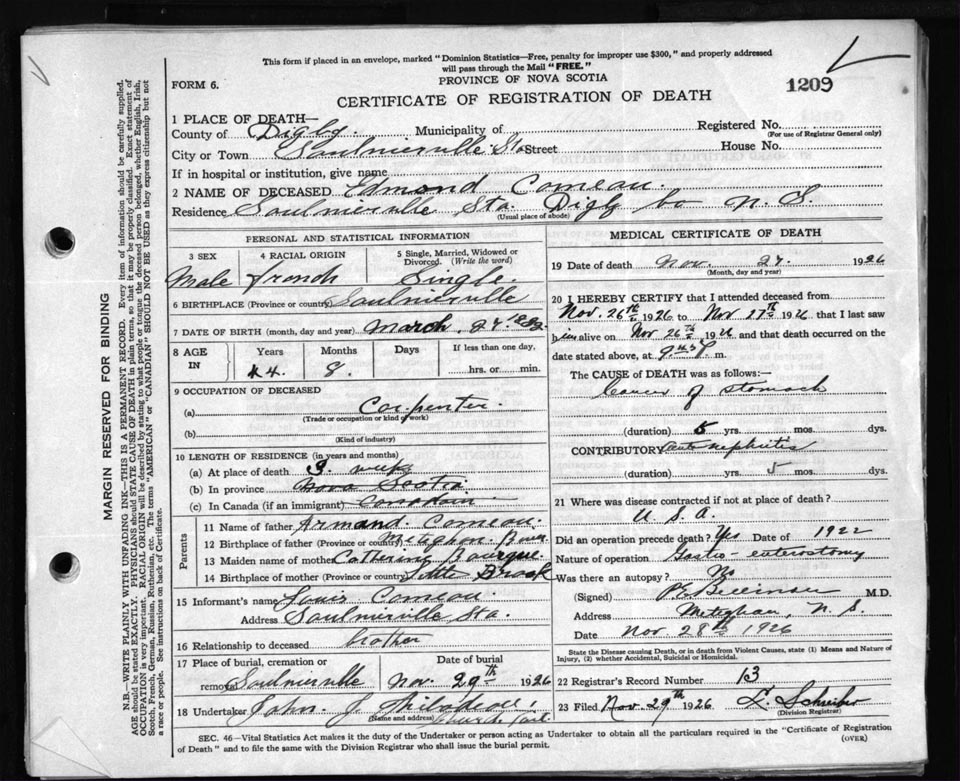 This form if placed in an envelope, marked "Dominion Statistics—Free, penalty for improper use $300," and properly addressed
will pass through the Mail "FREE."
PROVINCE OF NOVA SCOTIA
FORM 6.
1209
CERTIFICATE OF REGISTRATION OF DEATH
1 PLACE OF DEATH—
County of Digby. Municipality of Registered No.
(For use of Registrar General only)
City or Town Saulnierville Sta Street House No.
If in hospital or institution, give name
2 NAME OF DECEASED Edmond Comeau.
Residence Saulnierville Sta. Digby Co N. S.
(Usual place of abode)
PERSONAL AND STATISTICAL INFORMATION
3 SEX 4 RACIAL ORIGIN 5 Single, Married, Widowed or Divorced. (Write the word)
Male french Single
6 BIRTHPLACE (Province or country) Saulnierville
7 DATE OF BIRTH (month, day and year) March 27.
8 AGE IN Years Months Days If less than one day,
44. 8. hrs. or min.
9 OCCUPATION OF DECEASED
(a) Carpenter
(Trade or occupation or kind of work)
(b)
(Kind of industry)
10 LENGTH OF RESIDENCE (in years and months)
(a) At place of death 3 weeks
(b) In province Nova Scotia
(c) In Canada (if an immigrant) Canadain
Parents
11 Name of father Armand. Comeau.
12 Birthplace of father (Province or country) Meteghan River
13 Maiden name of mother Catherine Bourque
14 Birthplace of mother (Province or country) Little Brook
15 Informant's name Louis Comeau.
Address Saulnierville Sta.
16 Relationship to deceased brother
17 Place of burial, cremation or removal Saulnierville Date of burial Nov. 29th 1926
18 Undertaker John J Thibodeau
(Name and address) Church Point
MEDICAL CERTIFICATE OF DEATH
19 Date of death Nov. 27. 1926
(Month, day and year)
20 I HEREBY CERTIFY that I attended deceased from
Nov. 26th 1926 to Nov 27th 1926 that I last saw
him alive on Nov 26th 1926 and that death occurred on
date stated above, at 9 45 P. m.
The CAUSE of DEATH was as follows:—
Cancer of stomach
(duration) 5 yrs. mos. dys.
CONTRIBUTORY nephritis
(duration) yrs. 5 mos. dys.
21 Where was disease contracted if not at place of death?
U. S. A.
Did an operation precede death? Yes Date of 1922
Nature of operation Gastro-enterostomy
Was there an autopsy? No
(Signed) M.D.
Address Meteghan, N. S.
Date Nov 28th 1926
State the Disease causing Death, or in death from Violent Causes, state (1) Means and Nature of
Injury, (2) whether Accidental, Suicidal or Homicidal.
22 Registrar's Record Number 13
23 Filed Nov. 29th 1926.
(Division Registrar)
SEC. 46—Vital Statistics Act makes it the duty of the Undertaker or person acting as Undertaker to obtain all the particulars required in the "Certificate of Registration
of Death" and to file the same with the Division Registrar who shall issue the burial permit.
(OVER)
MARGIN RESERVED FOR BINDING
N.B.—WRITE PLAINLY WITH UNFADING INK—THIS IS A PERMANENT RECORD. Every item of information should be carefully supplied.
AGE should be stated EXACTLY. PHYSICIANS should STATE CAUSE OF DEATH in plain terms, so that it may be properly classified. Exact statement of
OCCUPATION is very important. RACIAL ORIGIN will be described by stating to what people or tongue the deceased person belonged, whether English, Irish,
Scotch, French, German, Russian, Ruthenian, etc. The terms "AMERICAN" or "CANADIAN" SHOULD NOT BE USED as they express citizenship but not
a race or people. See instructions on back of Certificate.